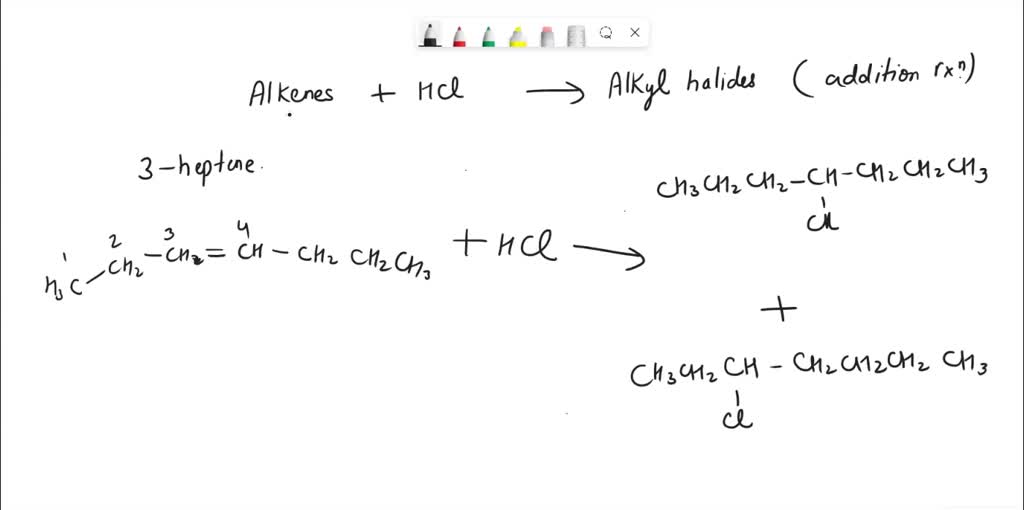 Alkenes + HCl ⟶ Alkyl halides ( addition rxⁿ)
3-heptene.
CH3CH2CH2-CH-CH2CH2CH3
Cl
1 2 3 4
H3C-CH2-CH=CH-CH2CH2CH3 + HCl ⟶
+
CH3CH2CH-CH2CH2CH2CH3
Cl